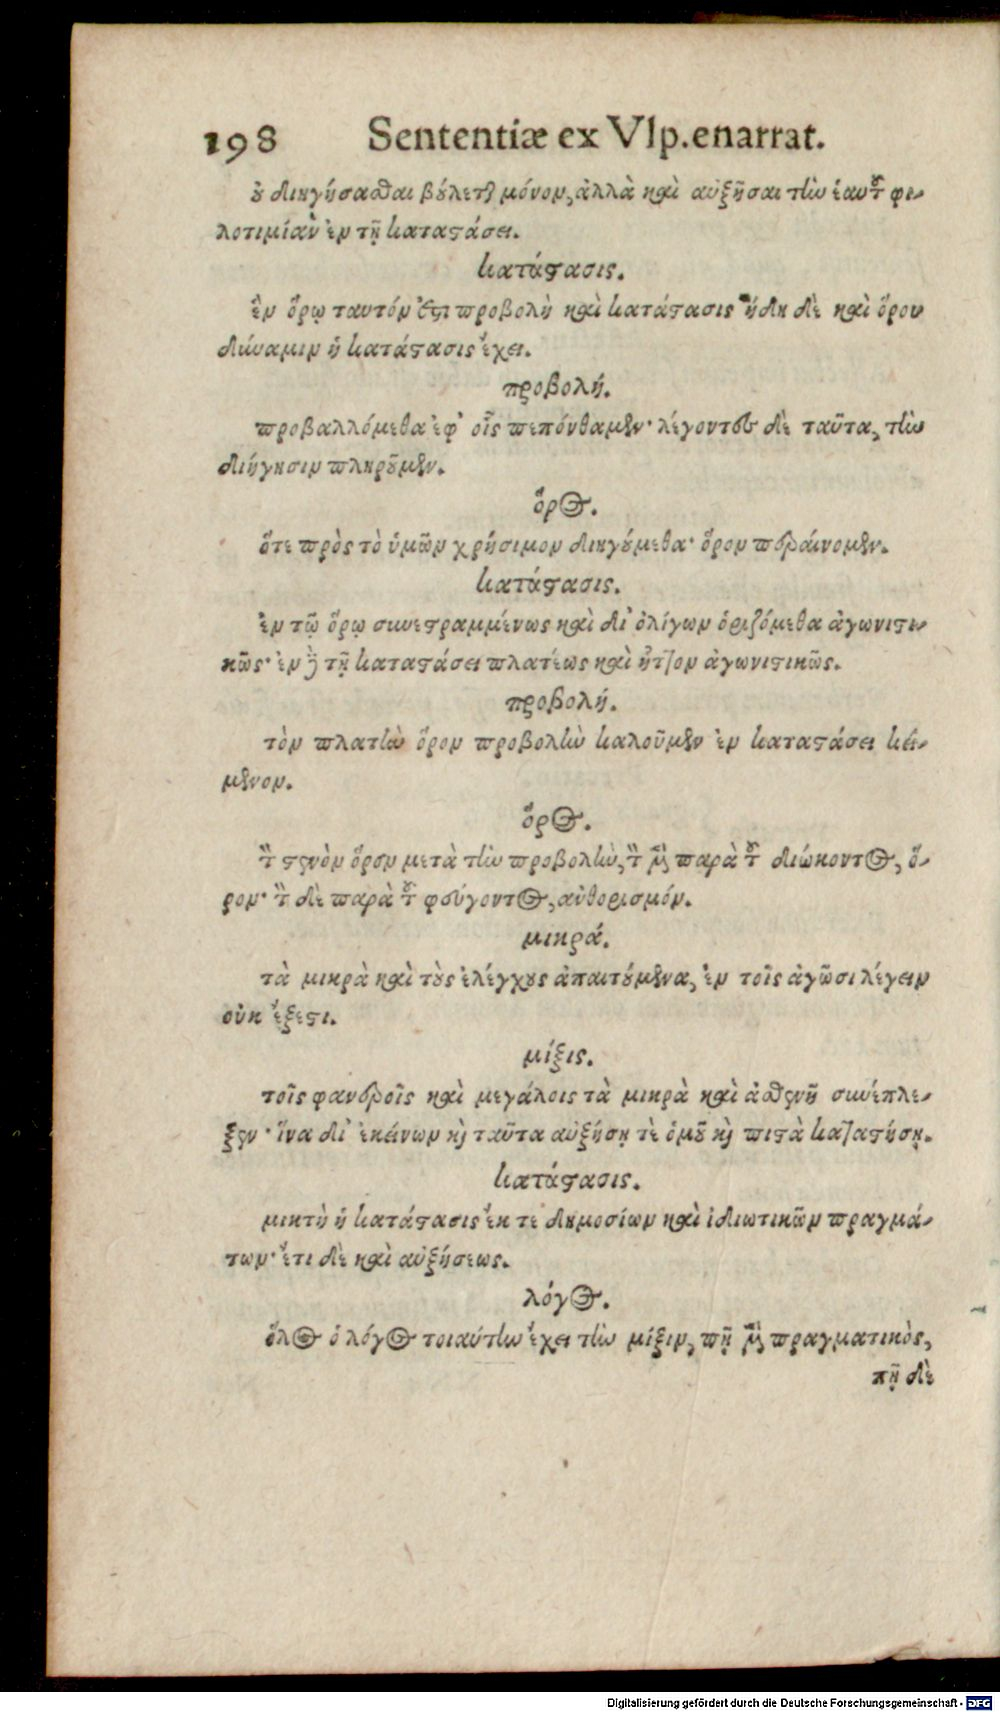 198 Sententiæ ex Vlp.enarrat.
οὐ διηγήσασθαι βούλεται μόνον, ἀλλὰ καὶ αὐξῆσαι τὴν ἑαυτοῦ φι-
λοτιμίαν ἐν τῇ καταστάσει.
κατάστασις.
ἐν ὅρῳ ταυτόν ἐστι προβολὴ καὶ κατάστασις· ἤδη δὲ καὶ ὅρου
δύναμιν ἡ κατάστασις ἔχει.
προβολή.
προβαλλόμεθα ἐφ' οἷς πεπόνθαμεν· λέγοντες δὲ ταῦτα, τὴν
διήγησιν πληροῦμεν.
ὅρος.
ὅτε πρὸς τὸ ὑμῶν χρήσιμον διηγούμεθα· ὅρον περαίνομεν.
κατάστασις.
ἐν τῷ ὅρῳ συνεστραμμένως καὶ δι' ὀλίγων ὁριζόμεθα ἀγωνιστι-
κῶς· ἐν δὲ τῇ καταστάσει πλατέως καὶ ἧττον ἀγωνιστικῶς.
προβολή.
τὸν πλατὺν ὅρον προβολὴν καλοῦμεν ἐν καταστάσει κεί-
μενον.
ὅρος.
τὸν στενὸν ὅρον μετὰ τὴν προβολὴν, τὸν μὲν παρὰ τοῦ διώκοντος, ὅ-
ρον· τὸν δὲ παρὰ τοῦ φεύγοντος, ἀνθορισμόν.
μικρά.
τὰ μικρὰ καὶ τοὺς ἐλέγχους ἀπαιτούμενα, ἐν τοῖς ἀγῶσι λέγειν
οὐκ ἔξεστι.
μίξις.
τοῖς φανεροῖς καὶ μεγάλοις τὰ μικρὰ καὶ ἀσθενῆ συνέπλε-
ξεν· ἵνα δι' ἐκείνων καὶ ταῦτα αὐξήσῃ τὲ ὁμοῦ καὶ πιστὰ καταστήσῃ.
κατάστασις.
μικτὴ ἡ κατάστασις ἔκ τε δημοσίων καὶ ἰδιωτικῶν πραγμά-
των· ἔτι δὲ καὶ αὐξήσεως.
λόγος.
ὅλος ὁ λόγος τοιαύτην ἔχει τὴν μίξιν, πῇ μὲν πραγματικὸς,
πῇ δὲ
Digitalisierung gefördert durch die Deutsche Forschungsgemeinschaft - DFG